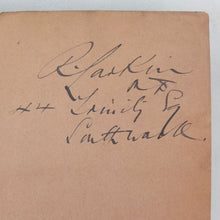 R. Larkin
44 Trinity Sq
Southwark